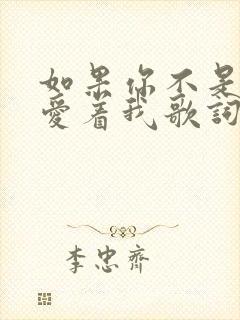 如果你不是
愛着我歌詞
李忠齊